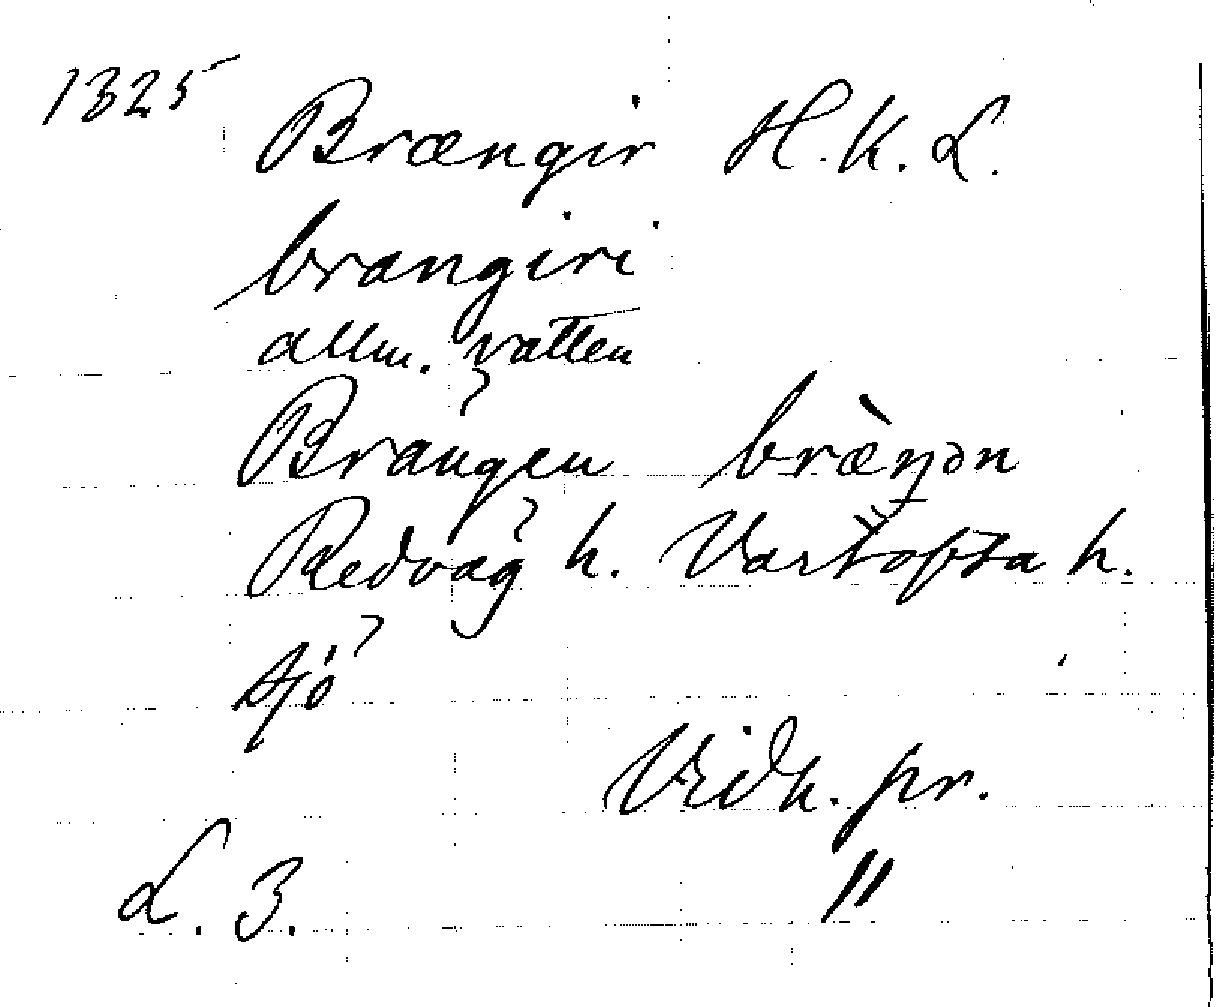 1325
Brængir H. K. L.
brangiri
allm. vatten
Brängen bræŋən
Redväg h. Vartofta h.
sjö
Vidh. pr.
L. 3. "